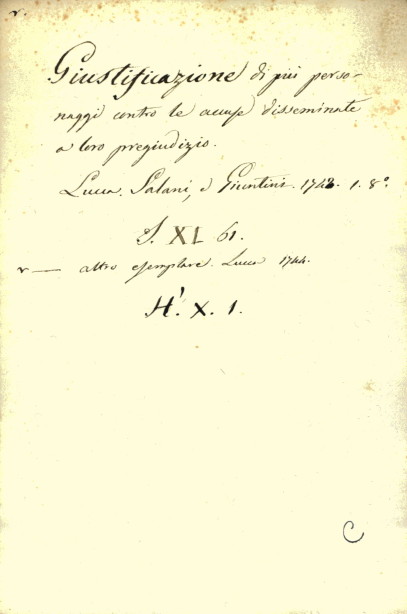 v.
Giustificazione di più perso-
naggi contro le accuse disseminate
a loro pregiudizio.
Lucca. Salani, e Giuntini. 1743. 1. 8.º
S. XL 61.
v — altro esemplare. Lucca 1744.
H'. X. 1.
C